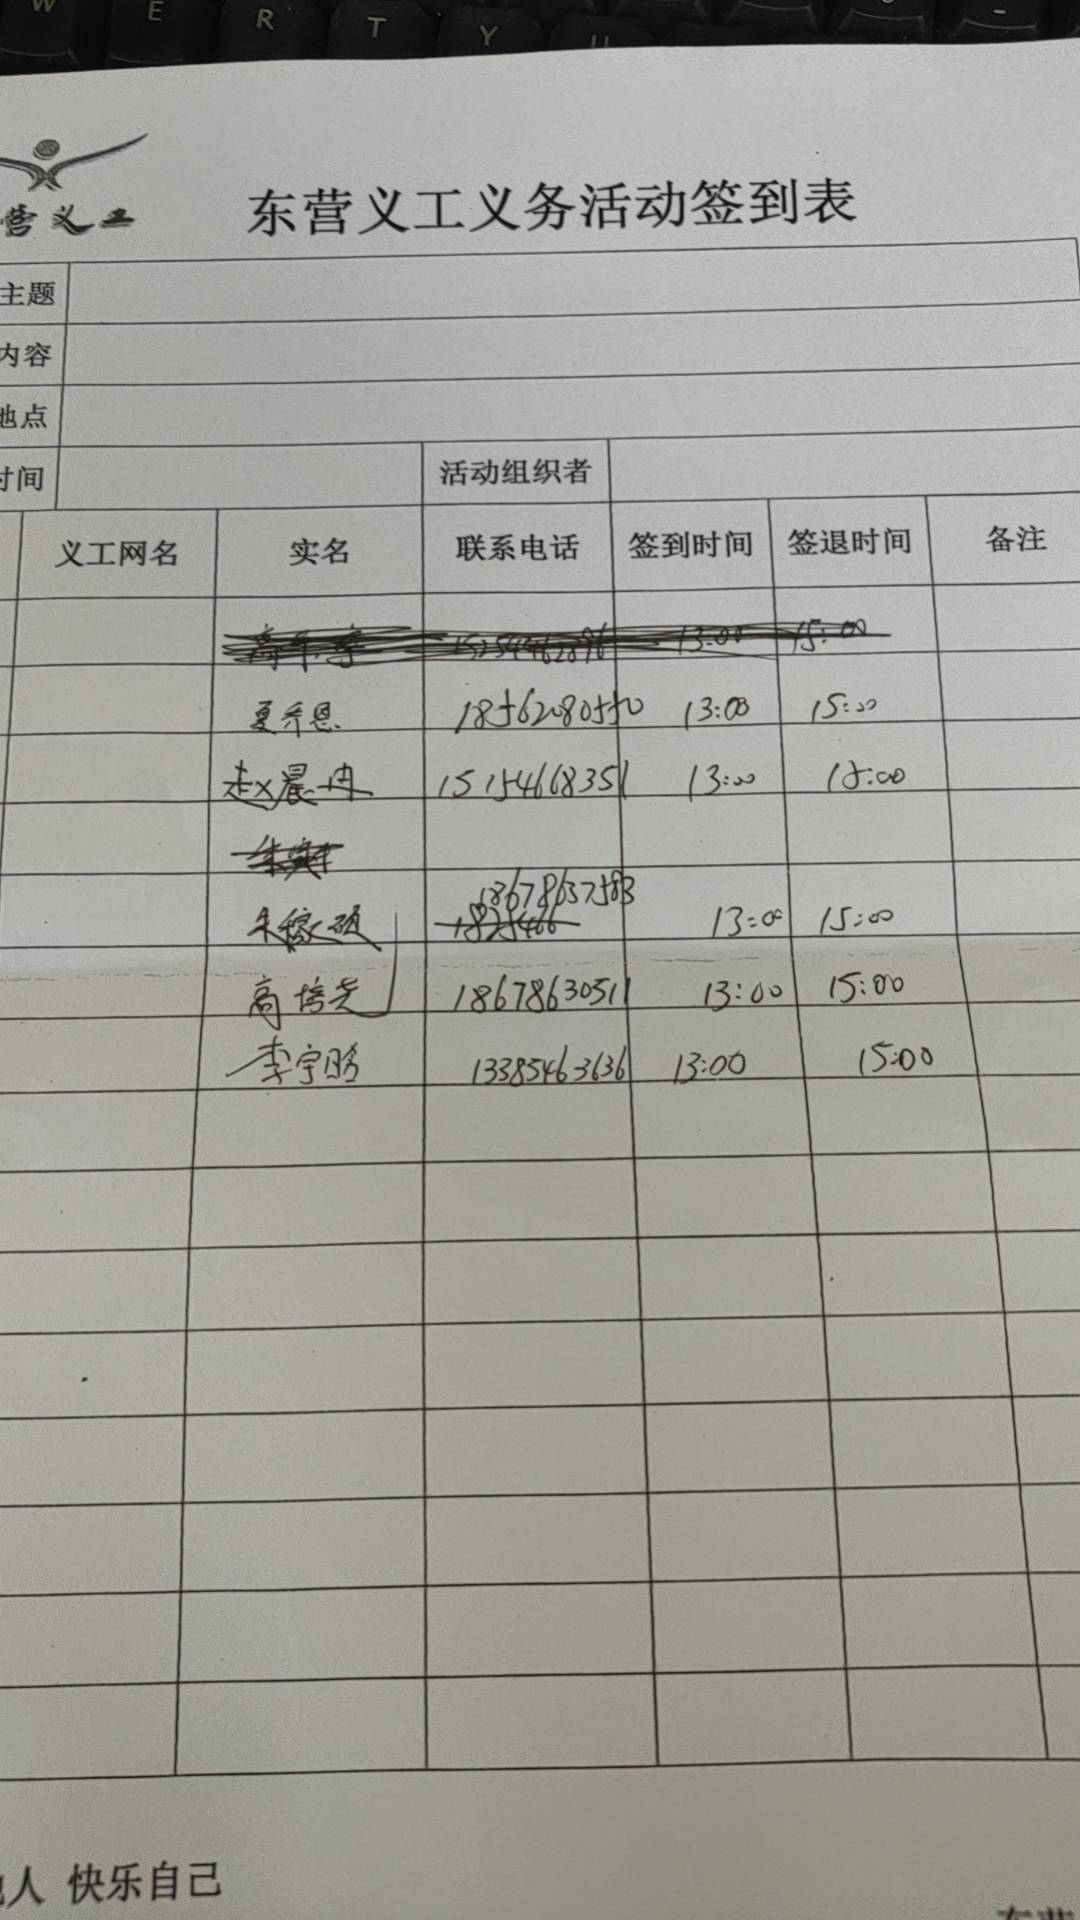 W E R T Y U
营义工
东营义工义务活动签到表
主题
内容
地点
时间
活动组织者
义工网名 实名 联系电话 签到时间 签退时间 备注
15254462896 13:00 15:00
夏乔恩 18562080550 13:00 15:00
赵晨冉 15154668351 13:00 15:00
18678637583
朱 1825466 13:00 15:00
高培尧 18678630511 13:00 15:00
李宇 13385463636 13:00 15:00
他人 快乐自己
东营